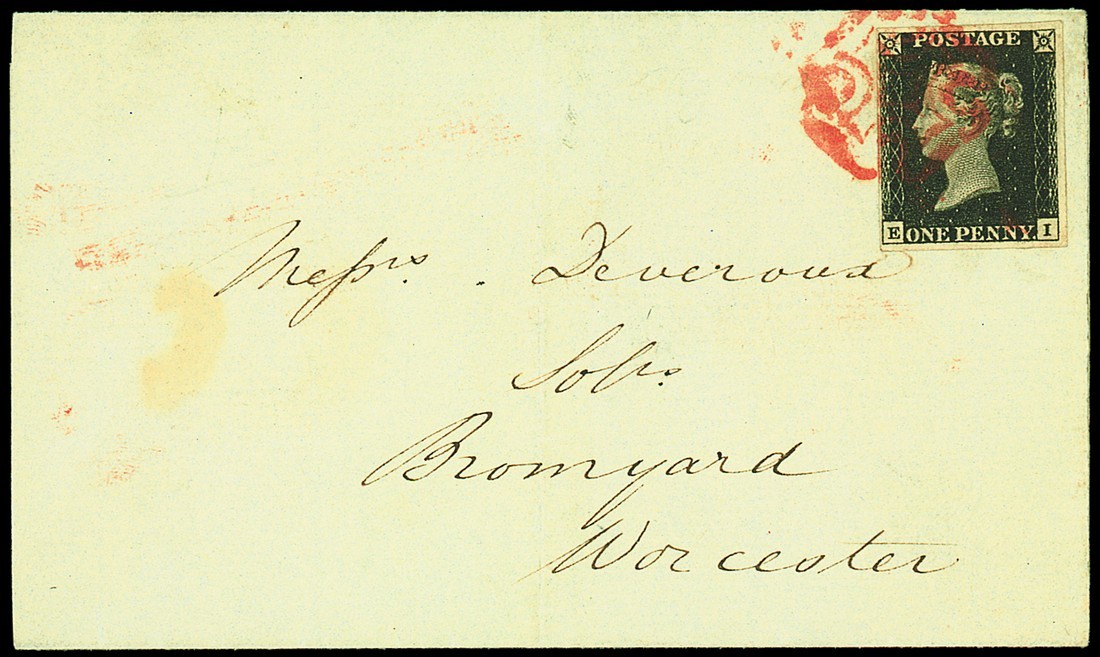 POSTAGE
E ONE PENNY. I
Messrs. Deveroux
Solrs
Bromyard
Worcester